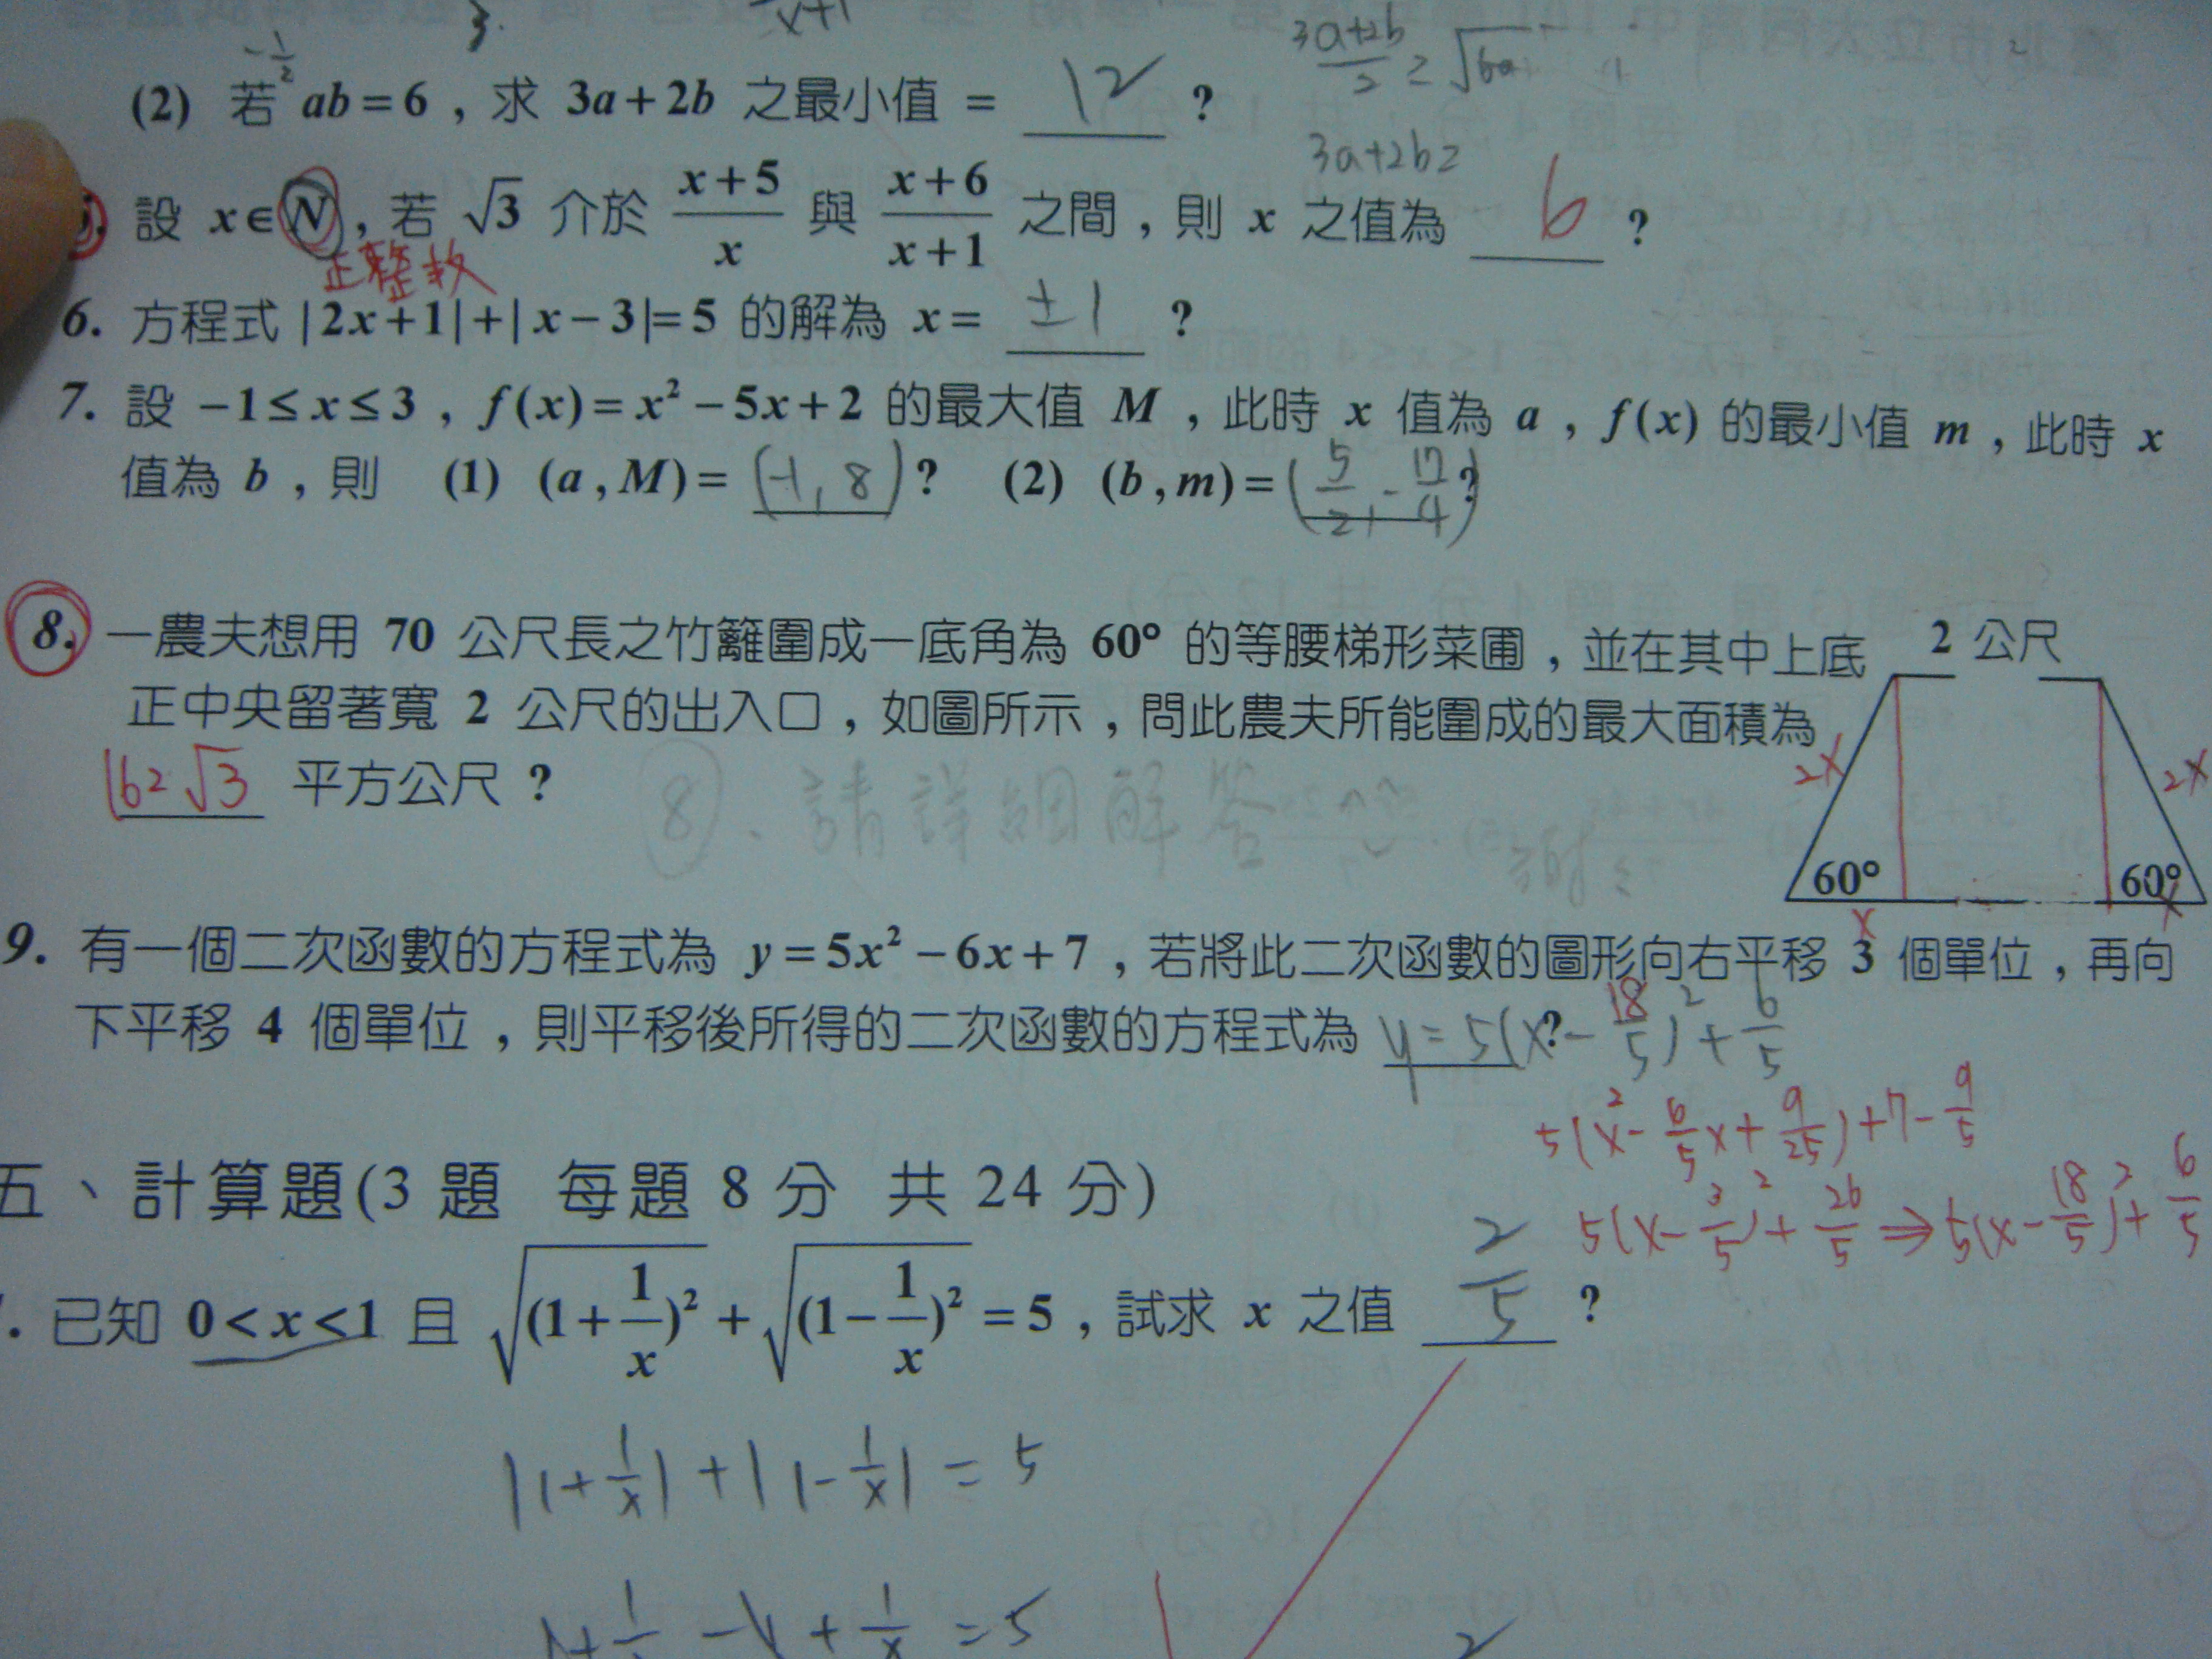 3.
x+1
-1/2
3a+2b/2 ≥ √6a
(2) 若 ab = 6 , 求 3a + 2b 之最小值 = 12 ?
3a+2b≥
設 x ∈ N , 若 √3 介於 x+5/x 與 x+6/x+1 之間 , 則 x 之值為 6 ?
正整數
6. 方程式 |2x+1|+|x-3|=5 的解為 x = ±1 ?
7. 設 -1≤x≤3 , f(x) = x² - 5x + 2 的最大值 M , 此時 x 值為 a , f(x) 的最小值 m , 此時 x
值為 b , 則 (1) (a , M) = (-1, 8) ? (2) (b , m) = (5/2, -17/4) ?
8. 一農夫想用 70 公尺長之竹籬圍成一底角為 60° 的等腰梯形菜圃 , 並在其中上底
正中央留著寬 2 公尺的出入口 , 如圖所示 , 問此農夫所能圍成的最大面積為
162√3 平方公尺 ?
2 公尺
2x
2x
60°
60°
x
x
⑧. 請詳細解答 ^^
謝
9. 有一個二次函數的方程式為 y = 5x² - 6x + 7 , 若將此二次函數的圖形向右平移 3 個單位 , 再向
下平移 4 個單位 , 則平移後所得的二次函數的方程式為 y = 5(x - 18/5)² + 6/5 ?
5(x² - 6/5x + 9/25) + 7 - 9/5
5(x - 3/5)² + 26/5 ⇒ 5(x - 18/5)² + 6/5
五、計算題(3 題 每題 8 分 共 24 分)
. 已知 0 < x < 1 且 √(1+1/x)² + √(1-1/x)² = 5 , 試求 x 之值 2/5 ?
|1+1/x| + |1-1/x| = 5
1+1/x - 1 + 1/x = 5
2